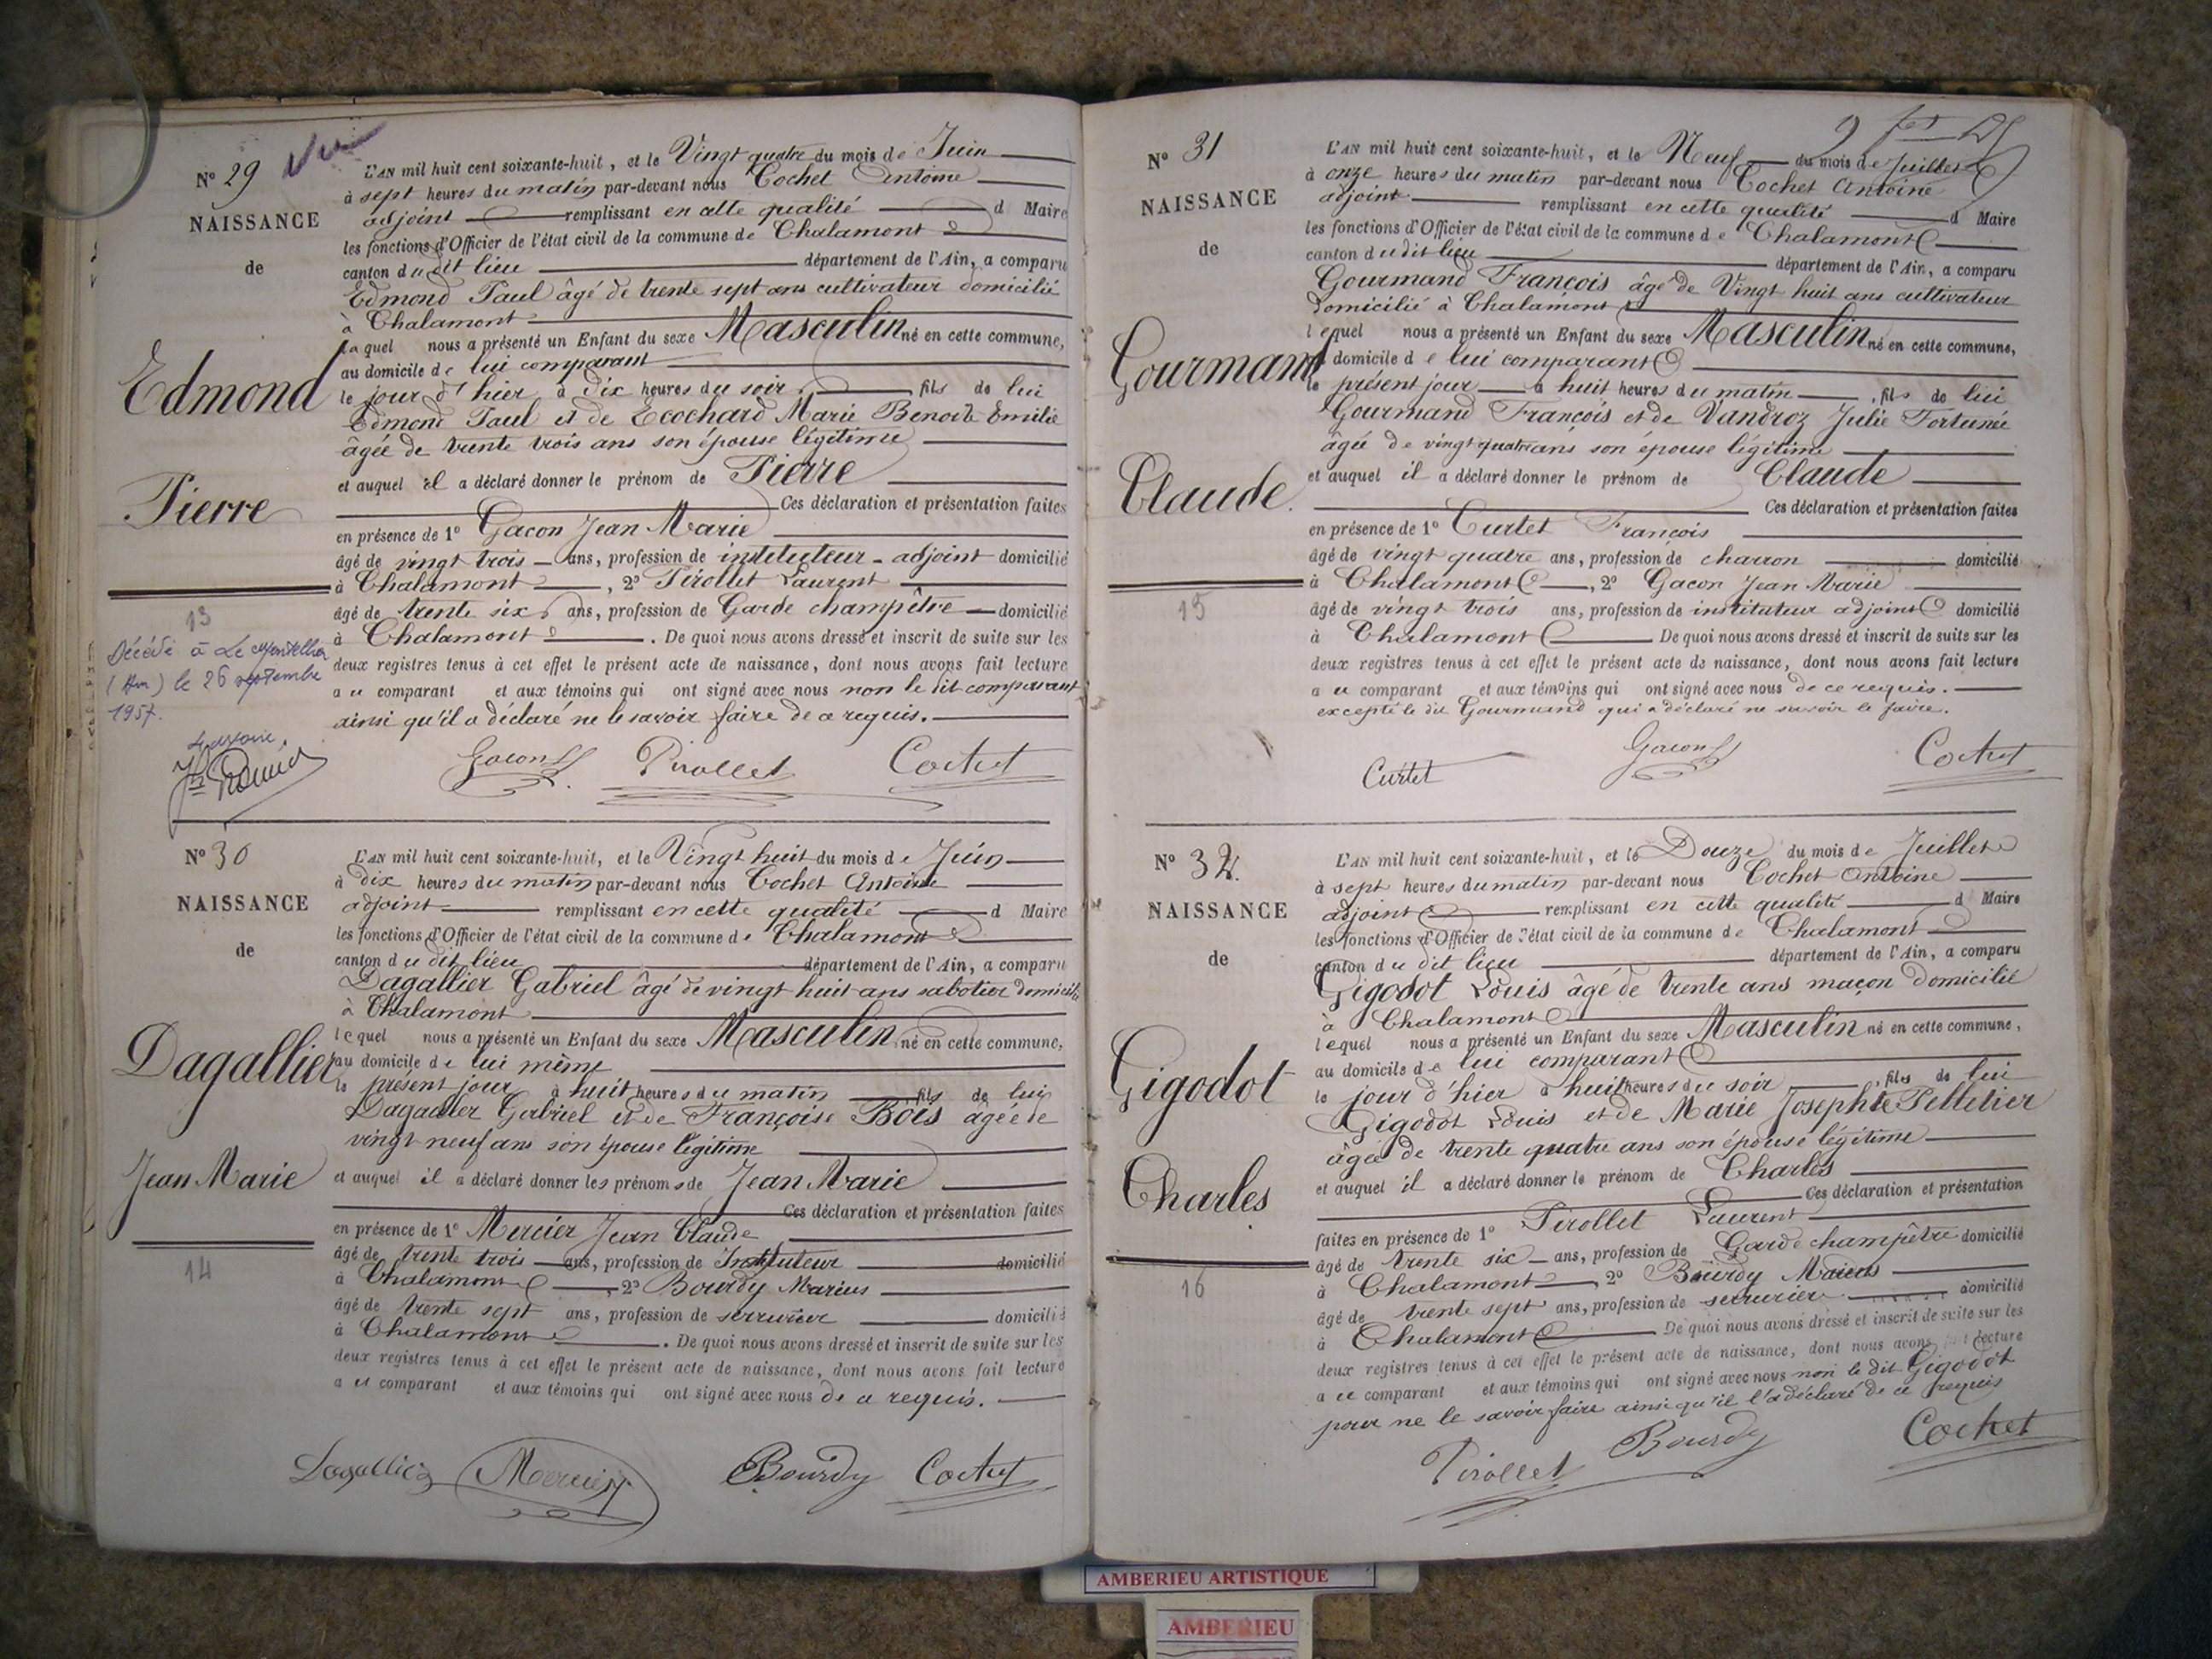 N° 29
NAISSANCE
de
Edmond
Pierre
13
Décédé à Le Montellier
(Ain) le 26 septembre
1957.
L'AN mil huit cent soixante-huit, et le Vingt quatre du mois de Juin
à sept heures du matin par-devant nous Cochet Antoine
adjoint remplissant en cette qualité d Maire
les fonctions d'Officier de l'état civil de la commune de Chalamont
canton du dit lieu département de l'Ain, a comparu
Edmond Paul âgé de trente sept ans cultivateur domicilié
à Chalamont
laquel nous a présenté un Enfant du sexe Masculin né en cette commune,
au domicile de lui comparant
le jour d'hier à dix heures du soir, fils de lui
Edmond Paul et de Ecochard Marie Benoite Emilie
âgée de trente trois ans son épouse légitime
et auquel il a déclaré donner le prénom de Pierre
Ces déclaration et présentation faites
en présence de 1° Gacon Jean Marie
âgé de vingt trois ans, profession de instituteur-adjoint domicilié
à Chalamont, 2° Pirollet Laurent
âgé de trente six ans, profession de Garde champêtre domicilié
à Chalamont. De quoi nous avons dressé et inscrit de suite sur les
deux registres tenus à cet effet le présent acte de naissance, dont nous avons fait lecture
au comparant et aux témoins qui ont signé avec nous non le dit comparant
ainsi qu'il a déclaré ne le savoir faire de ce requis.
Gacon Pirollet Cochet
N° 30
NAISSANCE
de
Dagallier
Jean Marie
14
L'AN mil huit cent soixante-huit, et le Vingt huit du mois de Juin
à dix heures du matin par-devant nous Cochet Antoine
adjoint remplissant en cette qualité d Maire
les fonctions d'Officier de l'état civil de la commune de Chalamont
canton du dit lieu département de l'Ain, a comparu
Dagallier Gabriel âgé de vingt huit ans sabotier domicilié
à Chalamont
lequel nous a présenté un Enfant du sexe Masculin né en cette commune,
au domicile de lui même
le présent jour à huit heures du matin fils de lui
Dagallier Gabriel et de Françoise Bois agée de
vingt neuf ans son épouse légitime
et auquel il a déclaré donner les prénoms de Jean Marie
Ces déclaration et présentation faites
en présence de 1° Mercier Jean Claude
âgé de trente trois ans, profession de Instituteur domicilié
à Chalamont, 2° Bourdy Marius
âgé de trente sept ans, profession de serrurier domicilié
à Chalamont. De quoi nous avons dressé et inscrit de suite sur les
deux registres tenus à cet effet le présent acte de naissance, dont nous avons fait lecture
au comparant et aux témoins qui ont signé avec nous de ce requis.
Dagallier Mercier Bourdy Cochet
N° 31
NAISSANCE
de
Gourmand
Claude.
15
L'AN mil huit cent soixante-huit, et le Neuf du mois de Juillet
à onze heures du matin par-devant nous Cochet Antoine
adjoint remplissant en cette qualité d Maire
les fonctions d'Officier de l'état civil de la commune de Chalamont
canton du dit lieu département de l'Ain, a comparu
Gourmand François âgé de Vingt huit ans cultivateur
domicilié à Chalamont
lequel nous a présenté un Enfant du sexe Masculin né en cette commune,
domicile de lui comparant
le présent jour à huit heures du matin, fils de lui
Gourmand François et de Vandroz Julie Fortunée
âgée de vingt quatre ans son épouse légitime
et auquel il a déclaré donner le prénom de Claude
Ces déclaration et présentation faites
en présence de 1° Curtet François
âgé de vingt quatre ans, profession de charron domicilié
à Chalamont, 2° Gacon Jean Marie
âgé de vingt trois ans, profession de instituteur adjoint domicilié
à Chalamont De quoi nous avons dressé et inscrit de suite sur les
deux registres tenus à cet effet le présent acte de naissance, dont nous avons fait lecture
au comparant et aux témoins qui ont signé avec nous de ce requis.
excepté le dit Gourmand qui a déclaré ne savoir le faire.
Curtet Gacon Cochet
N° 32.
NAISSANCE
de
Gigodot
Charles
16
L'AN mil huit cent soixante-huit, et le Douze du mois de Juillet
à sept heures du matin par-devant nous Cochet Antoine
adjoint remplissant en cette qualité d Maire
les fonctions d'Officier de l'état civil de la commune de Chalamont
canton du dit lieu département de l'Ain, a comparu
Gigodot Louis âgé de trente ans maçon domicilié
à Chalamont
lequel nous a présenté un Enfant du sexe Masculin né en cette commune,
au domicile de lui comparant
le jour d'hier à huit heures du soir, fils de lui
Gigodot Louis et de Marie Josephte Pelletier
âgée de trente quatre ans son épouse légitime
et auquel il a déclaré donner le prénom de Charles
Ces déclaration et présentation
faites en présence de 1° Pirollet Laurent
âgé de trente six ans, profession de Garde champêtre domicilié
à Chalamont, 2° Bourdy Marius
âgé de trente sept ans, profession de serrurier domicilié
à Chalamont De quoi nous avons dressé et inscrit de suite sur les
deux registres tenus à cet effet le présent acte de naissance, dont nous avons fait lecture
au comparant et aux témoins qui ont signé avec nous non le dit Gigodot
pour ne le savoir faire ainsi qu'il l'a déclaré de ce requis
Pirollet Bourdy Cochet
AMBERIEU ARTISTIQUE
AMBERIEU